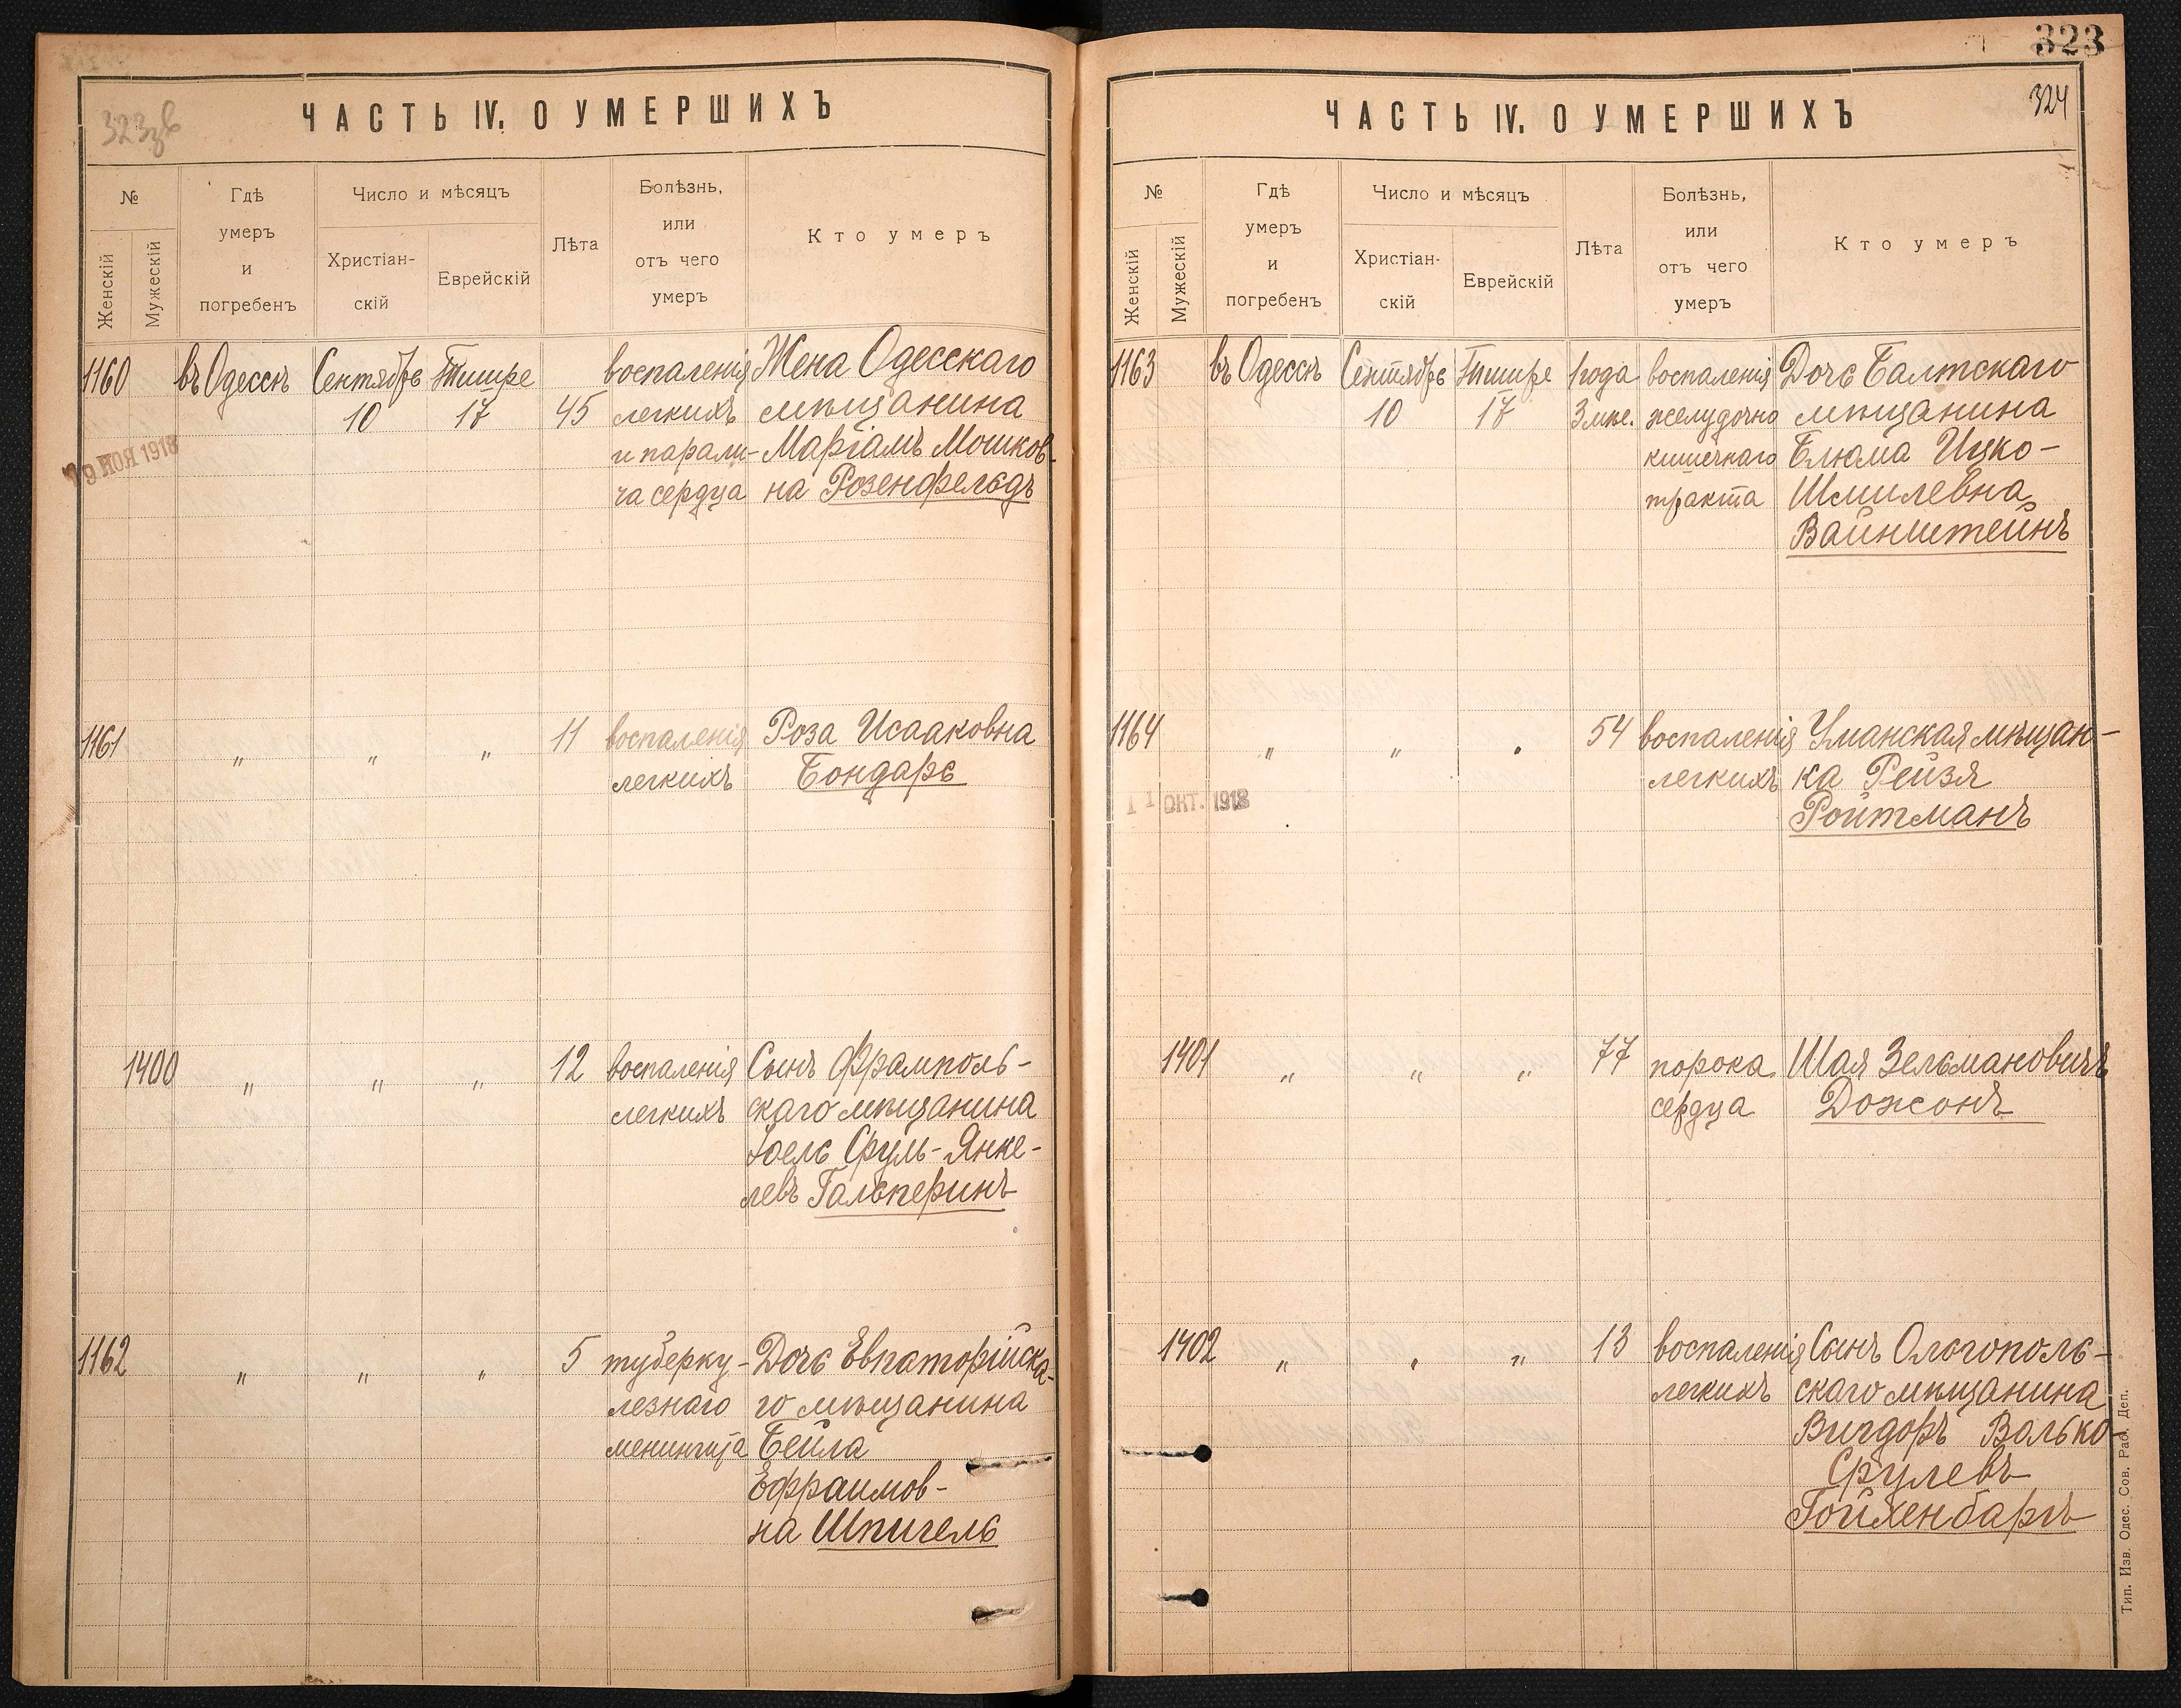 323 зв
ЧАСТЬ IV. О УМЕРШИХЪ
№
Женскій
Мужескій
Гдѣ
умеръ
и
погребенъ
Число и мѣсяцъ
Христіан-
скій
Еврейскій
Лѣта
Болѣзнь,
или
отъ чего
умеръ
Кто умеръ
1160 въ Одессѣ Сентябрь Тишре воспаленія Жена Одесскаго
10 17 45 легкихъ мѣщанина
и парали- Маріамъ Мошков-
ча сердца на Розенфельдъ
19 НОЯ 1918
1161 " " " 11 воспаленія Роза Исааковна
легкихъ Бондарь
1400 " " " 12 воспаленія Сынъ Фрамполь-
легкихъ скаго мѣщанина
Іоель Сруль-Янке-
левъ Гальперинъ
1162 " " " 5 туберку- Дочь Евпаторійска-
лезнаго го мѣщанина
менингита Бейла
Ефраимов-
на Шпигель
323
324
ЧАСТЬ IV. О УМЕРШИХЪ
№
Женскій
Мужескій
Гдѣ
умеръ
и
погребенъ
Число и мѣсяцъ
Христіан-
скій
Еврейскій
Лѣта
Болѣзнь,
или
отъ чего
умеръ
Кто умеръ
1163 въ Одессѣ Сентябрь Тишре 1 года воспаленія Дочь Балтскаго
10 17 3 мѣс. желудочно мѣщанина
кишечнаго Блюма Ицко-
тракта Шмилевна
Вайнштейнъ
1164 " " " 54 воспаленія Уманская мѣщан-
легкихъ ка Рейзя
11 ОКТ. 1918 Ройтманъ
1401 " " " 77 порока Шая Зельмановичъ
сердца Дожонъ
1402 " " " 13 воспаленія Сынъ Ольгополь-
легкихъ скаго мѣщанина
Вигдоръ Волько-
Срулевъ
Гойхенбаргъ
Тип. Изв. Одес. Сов. Раб. Деп.